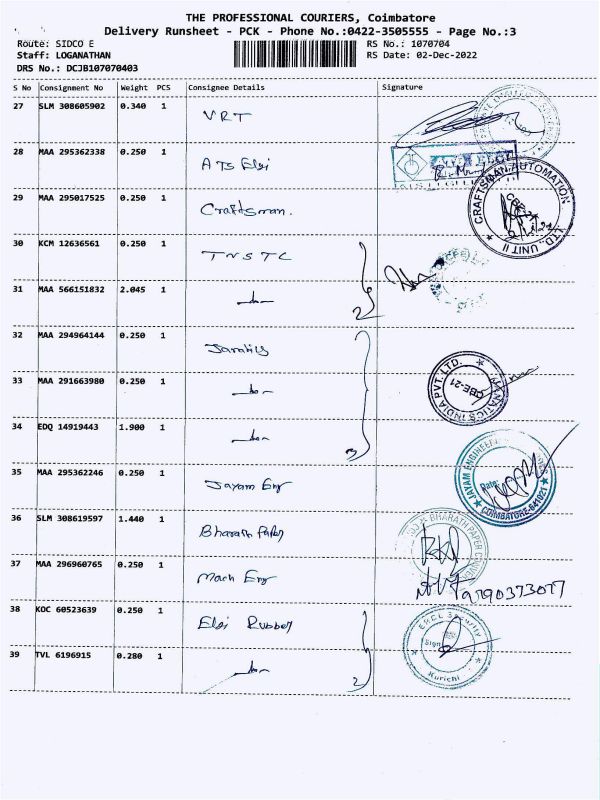 THE PROFESSIONAL COURIERS, Coimbatore
Delivery Runsheet - PCK - Phone No.:0422-3505555 - Page No.:3
Route: SIDCO E
RS No.: 1070704
Staff: LOGANATHAN
RS Date: 02-Dec-2022
DRS No.: DCJB107070403
S No Consignment No Weight PCS Consignee Details Signature
27 SLM 308605902 0.340 1 VRT
28 MAA 295362338 0.250 1 ATS Elgi
29 MAA 295017525 0.250 1 Craftsman.
CRAFTSMAN AUTOMATION
LTD. UNIT II
CBE-21
30 KCM 12636561 0.250 1 TNSTC
31 MAA 566151832 2.045 1
2
32 MAA 294964144 0.250 1
33 MAA 291663980 0.250 1
INDIA PVT. LTD.
CBE-21
34 EDQ 14919443 1.900 1
3
35 MAA 295362246 0.250 1 Jayam Eng
JAYAM ENGINEER
Date:
COIMBATORE-641021
36 SLM 308619597 1.440 1 Bharath Paper
BHARATH PAPER CONVER
37 MAA 296960765 0.250 1 Mach Eng
9790373077
38 KOC 60523639 0.250 1 Elgi Rubber
Security
Sign
Kurichi
39 TVL 6196915 0.280 1
2